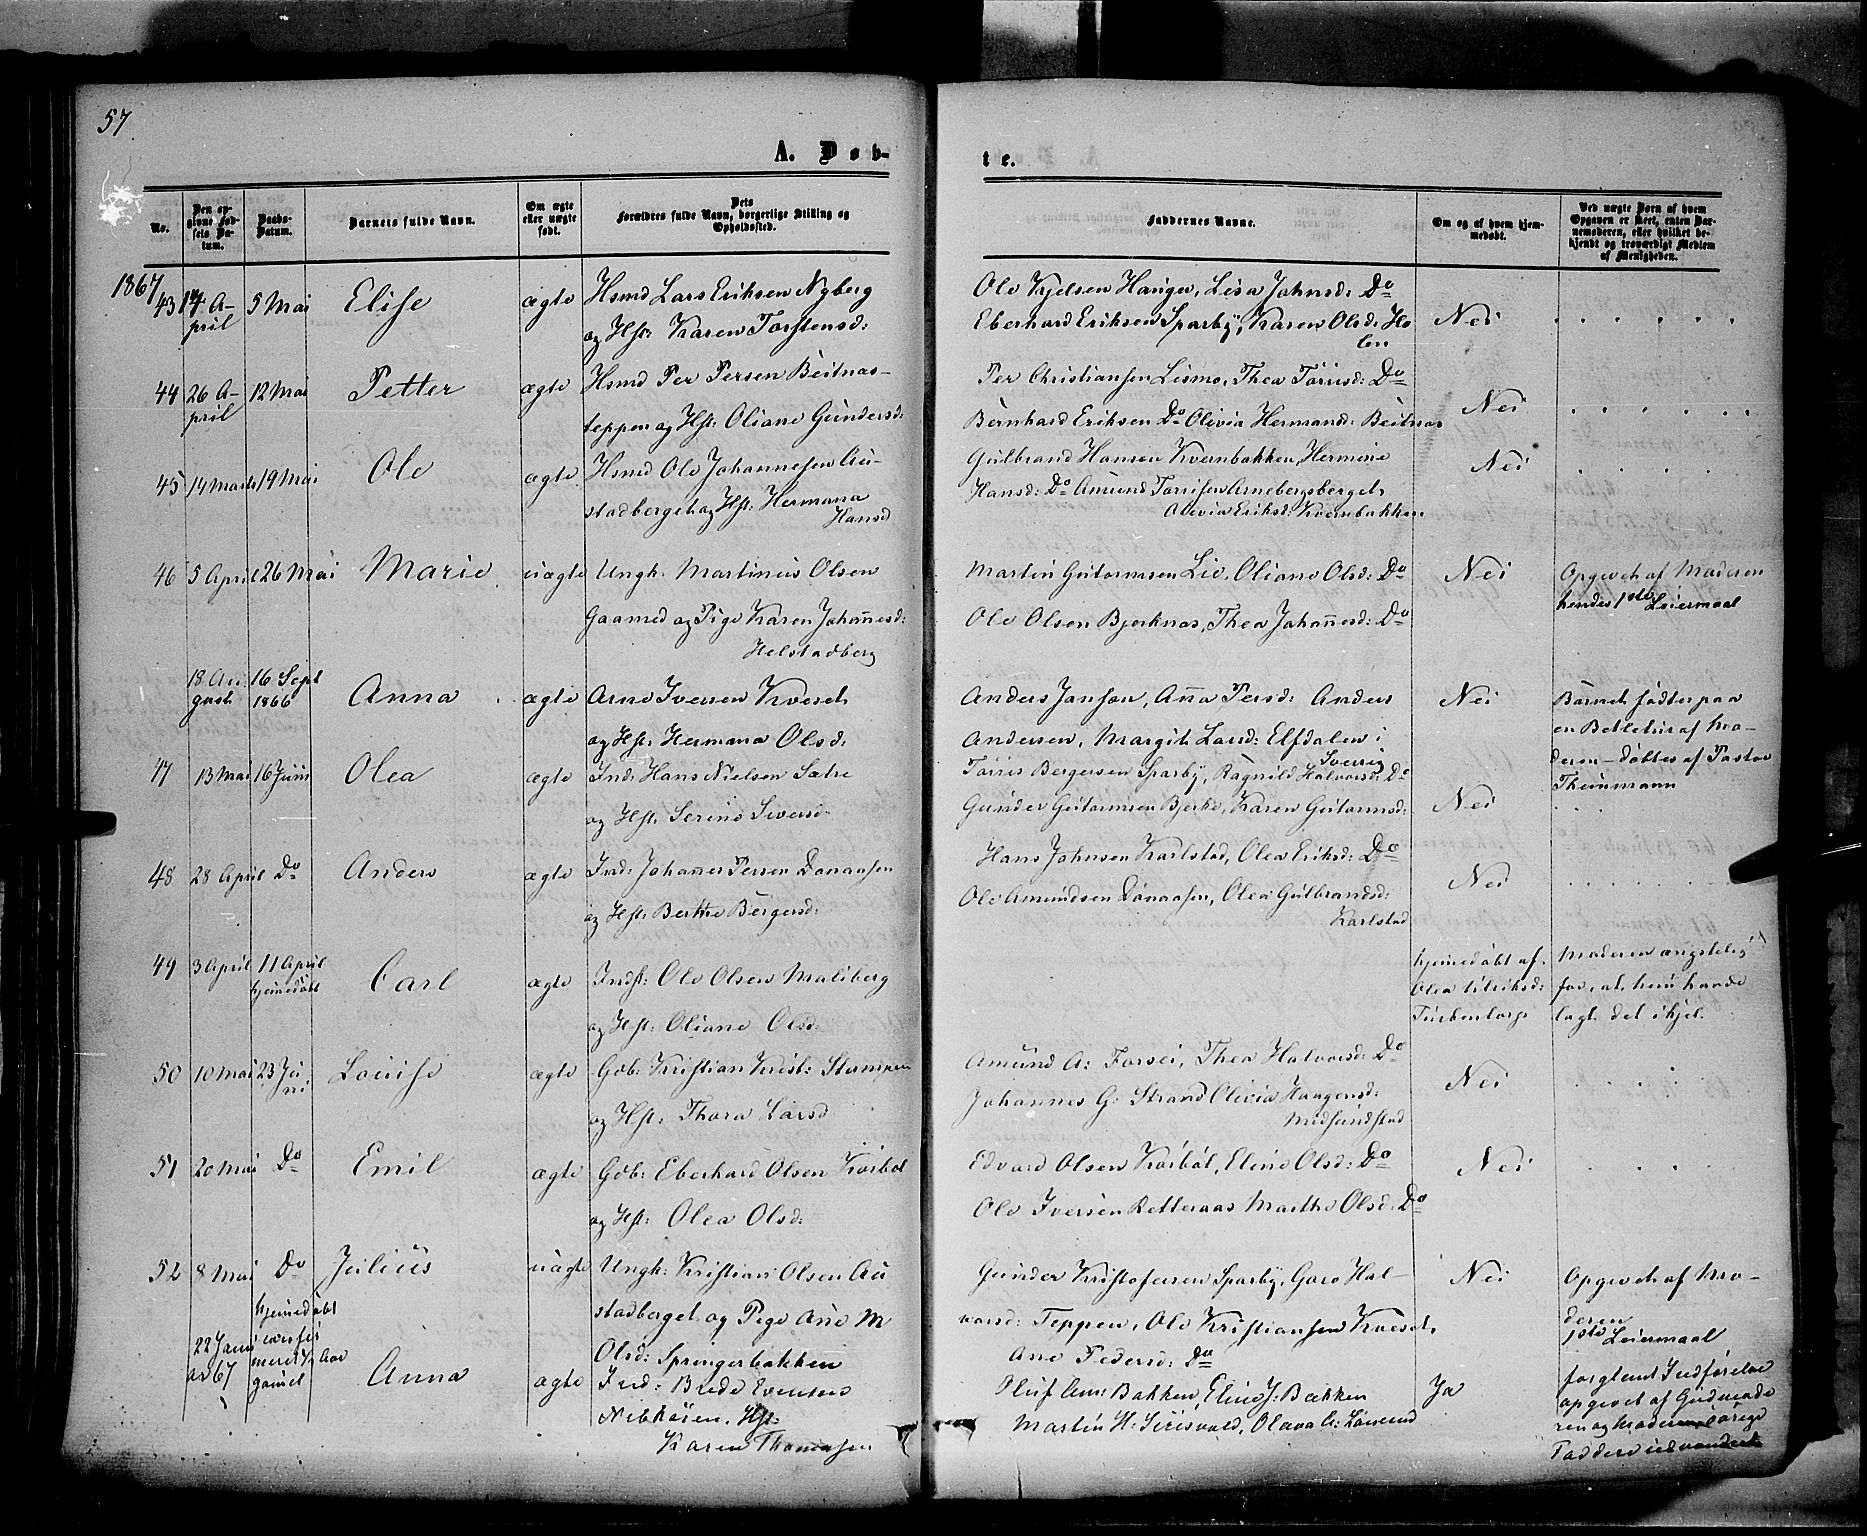 57
A. Døb-
te.
No.
Den op-
givne Fød-
sels Da-
tum.
Daabs-
Datum.
Barnets fulde Navn.
Om ægte
eller uægte
født.
Dets
Forældres fulde Navn, borgerlige Stilling og
Opholdssted.
Faddernes Navne.
Om og af hvem hjem-
medøbt.
Ved uægte Børn af hvem
Opgaven er skeet, enten Bar-
nemoderen, eller hvilket be-
kjendt og troværdigt Medlem
af Menigheden.
1867
43 14 A-
pril 5 Mai Elise ægte Hsmd Lars Eriksen Nyberg
og Hst: Karen Torstensd:
Ole Kjelsen Hanger, Lisa Johnsd: Do
Eberhard Eriksen Sparby, Karen Olsd: Ho
len
Nei
44 26 A-
pril 12 Mai Petter ægte Hsmd Per Persen Beitnas-
teppen og Hst: Oliane Gundersd:
Per Christiansen Lismo, Thea Tørrisd: Do
Bernhard Eriksen Do Olivia Hermansd: Beitnas
Nei
45 14 Marts 19 Mai Ole ægte Hsmd Ole Johannesen Au-
stadberget og Hst: Hermana
Hansd
Gulbrand Hansen Kvernbakken, Hermine
Hansd: Do Amund Tørrisen Arnebergsberget,
Olivia Eriksd: Kvernbakken
Nei
46 5 April 26 Mai Marie uægte Ungk. Martinus Olsen
Gaamed og Pige Karen Johannesd:
Helstadberg
Martin Guttormsen Lie, Oliane Olsd: Do
Ole Olsen Bjerknas, Thea Johannesd: Do
Nei
Opgivet af Moderen
hendes 1ste Leiermaal
18 Au-
gust 16 Sept
1866 Anna ægte Arne Iversen Kveset
og Hst: Hermana Olsd:
Anders Jonson, Anna Persd: Anders
Andersen, Margit Larsd: Elfdalen i
Sverig
Nei
Barnet født paa
en Betletur af Mo-
deren - døbtes af Pastor
Theinmann
47 13 Mai 16 Juni Olea ægte Ind: Hans Nielsen Sætre
og Hst: Serine Siversd:
Tørris Bergersen Sparby, Ragnild Halvorsd: Do
Gunder Guttormsen Bjerke, Karen Guttormsd:
Nei
48 28 April Do Anders ægte Ind: Johannes Persen Donaasen
og Hst: Berthe Bergersd:
Hans Johnsen Karlstad, Olea Eriksd: Do
Ole Amundsen Donaasen, Olea Gulbrandsd:
Karlstad
Nei
49 3 April 11 April
hjemedøbt Carl ægte Indst: Ole Olsen Maliberg
og Hst: Oliane Olsd:
hjemedøbt af
Olea Ulriksd:
Furbentorp
Moderen ængstelig
for, at hun havde
lagt det ihjel.
50 10 Mai 23 Ju
ni Louise ægte Gbb: Kristian Krist: Stampen
og Hst: Thora Larsd
Amund A: Forsei, Thea Halvorsd: Do
Johannes G: Strand Olivia Haagensd:
Midsundstad
Nei
51 20 Mai Do Emil ægte Gbb: Eberhard Olsen Kørbøl
og Hst: Olea Olsd:
Edvard Olsen Kørbøl, Eline Olsd: Do
Ole Iversen Retteraas Marthe Olsd: Do
Nei
52 8 Mai Do Julius uægte Ungk: Kristian Olsen Au
stadberget og Pige Ane M
Olsd: Springerbakken
Gunder Kristofersen Sparby, Goro Hal-
vorsd: Teppen, Ole Kristiansen Kveset,
Ane Pedersd: Do
Nei
Opgivet af Mo-
deren
1ste Leiermaal
22 Januar
67 hjemedøbt
gamel Anna ægte Ind: Brede Evensen
Nibkøien, Hst:
Karen Thomasen
Oluf Am: Bakken, Eline J: Bakken
Martin H: Siirsvold, Olava A: Lønrud
Ja
forglemt Indførelse
opgivet af Gudmode
ren og Moderen øvrige
Faddere udvandret